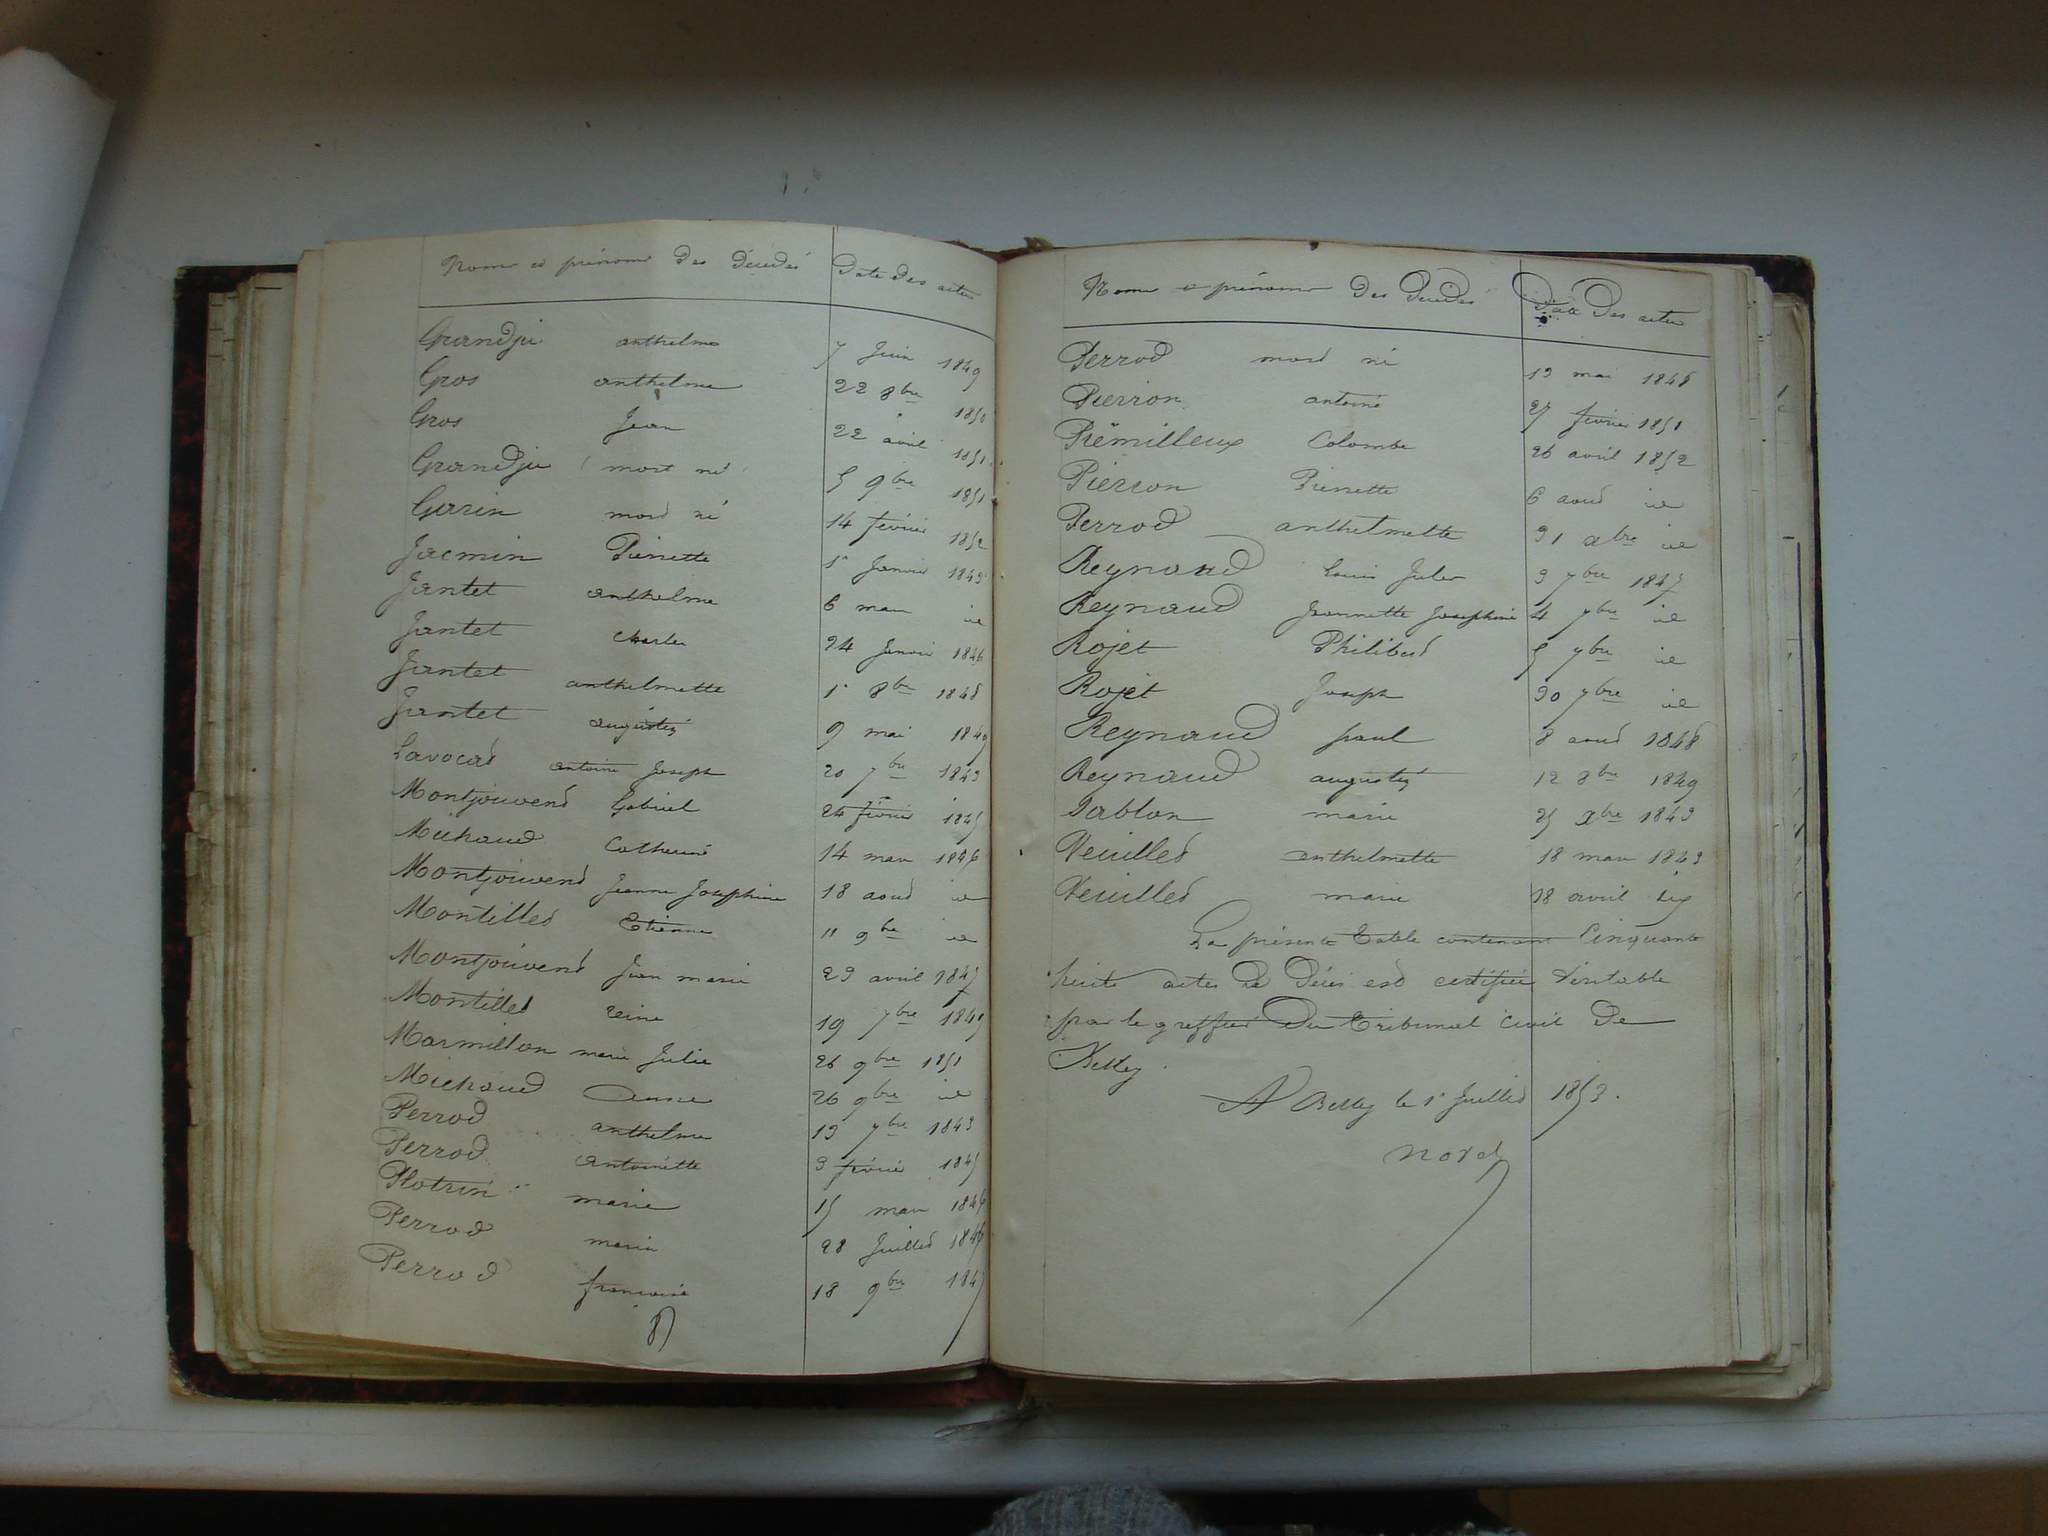 Noms et prénoms des décédés Date des actes
Grandju anthelme 7 Juin 1849
Gros anthelme 22 8bre 1850
Gros Jean 22 avril 1851
Grandju mort né 5 9bre 1851
Gurin mort né 14 février 1852
Jacmin Pierrette 1er Janvier 1843
Jantet anthelme 6 mars id
Jantet charles 24 Janvier 1846
Jantet anthelmette 1er 8bre 1848
Jantet augustin 9 mai 1849
Lavocat antoine Joseph 20 7bre 1843
Montjouvent Gabriel 24 février 1845
Michaud Catherine 14 mars 1846
Montjouvent Jeanne Josephine 18 aout id
Montillet Etienne 11 9bre id
Montjouvent Jean marie 23 avril 1847
Montillet reine 19 7bre 1849
Marmillon marie Julie 26 9bre 1851
Michaud anne 26 9bre id
Perrod anthelme 13 7bre 1843
Perrod antoinette 3 février 1845
Plotrin marie 15 mars 1846
Perrod marie 28 Juillet 1846
Perrod francoise 18 9bre 1847
Noms et prénoms des décédés Date des actes
Perrod mort né 13 mai 1848
Pierron antoine 27 février 1851
Prémilleux Colombe 26 avril 1852
Pierron Pierrette 6 aout id
Perrod anthelmette 31 xbre id
Reynaud Louis Jules 3 7bre 1847
Reynaud Jeannette Josephine 4 7bre id
Rojet Philibert 5 7bre id
Rojet Joseph 30 7bre id
Reynaud paul 8 aout 1848
Reynaud augustin 12 8bre 1849
Sablon marie 25 xbre 1843
Veuillet anthelmette 18 mars 1843
Veuillet marie 18 avril
La présente table contenant Cinquante
huit actes de Décés est certifiée véritable
par le greffier du tribunal civil de
Belley.
A Belley le 1er Juillet 1853.
nord